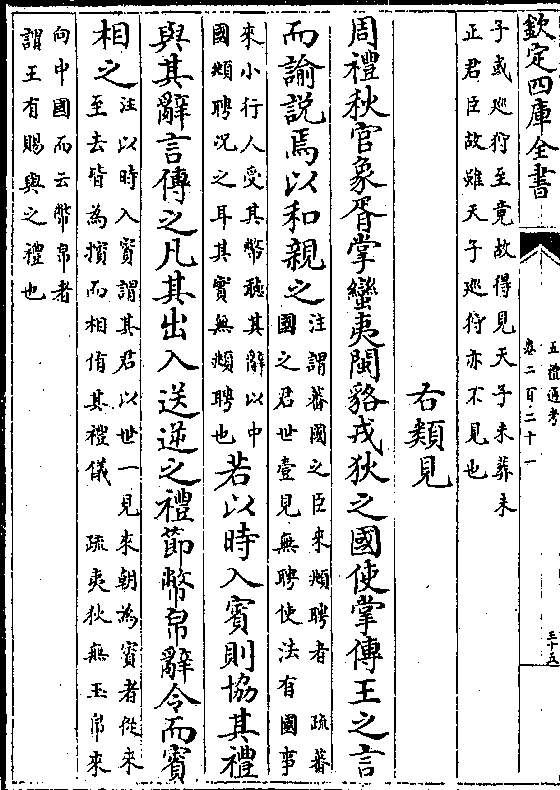 欽定四庫全書
五禮通考
卷二百二十一
三十五
子或廵狩至竟故得見天子未葬未
正君臣故雖天子廵狩亦不見也
右類見
周禮秋官象胥掌蠻夷閩貉戎狄之國使掌傳王之言
而諭說焉以和親之
注謂蕃國之臣來頫聘者　疏蕃
國之君世壹見無聘使法有國事
來小行人受其幣聽其辭以中
國頫聘况之耳其實無頫聘也
若以時入賓則協其禮
與其辭言傳之凡其出入送逆之禮節幣帛辭令而賓
相之
注以時入賓謂其君以世一見來朝為賓者從來
至去皆為擯而相侑其禮儀　疏夷狄無玉帛來
向中國而云幣帛者
謂王有賜與之禮也